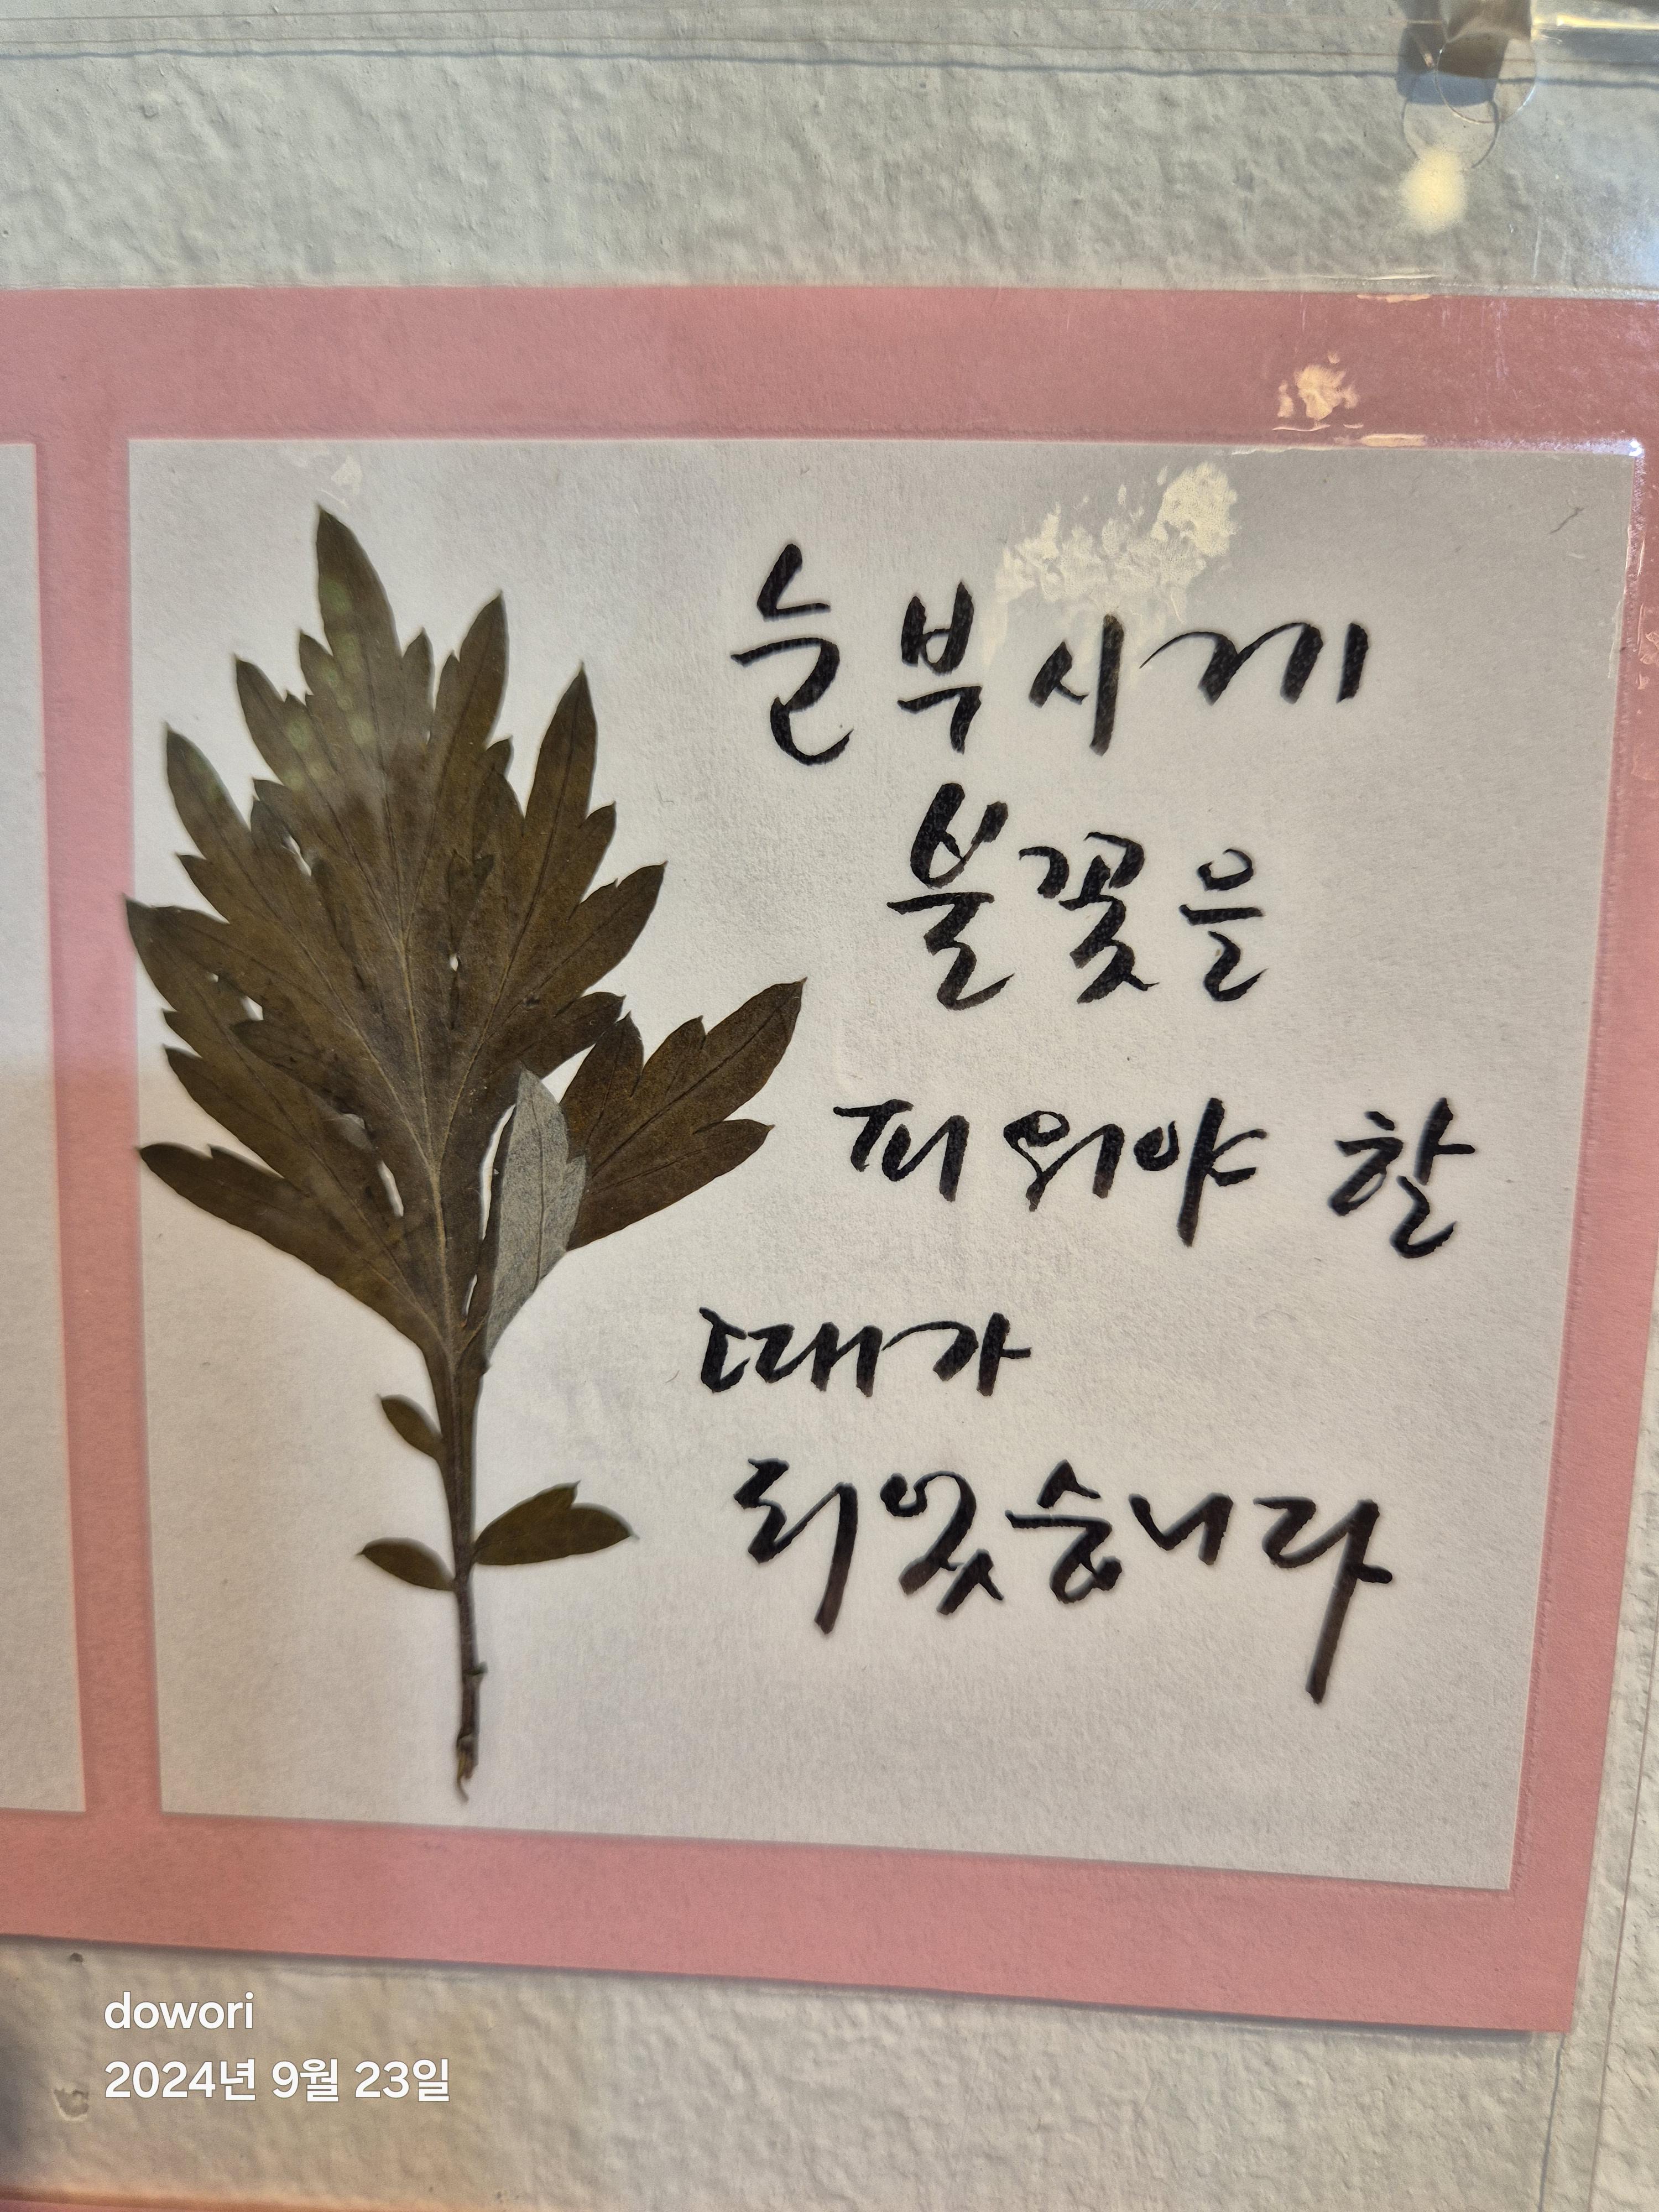 눈부시게
불꽃을
피워야 할
때가
되었습니다
dowori
2024년 9월 23일